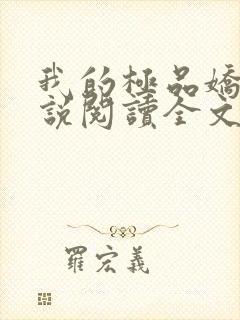 我的極品嬌
說閱讀全文
羅宏義